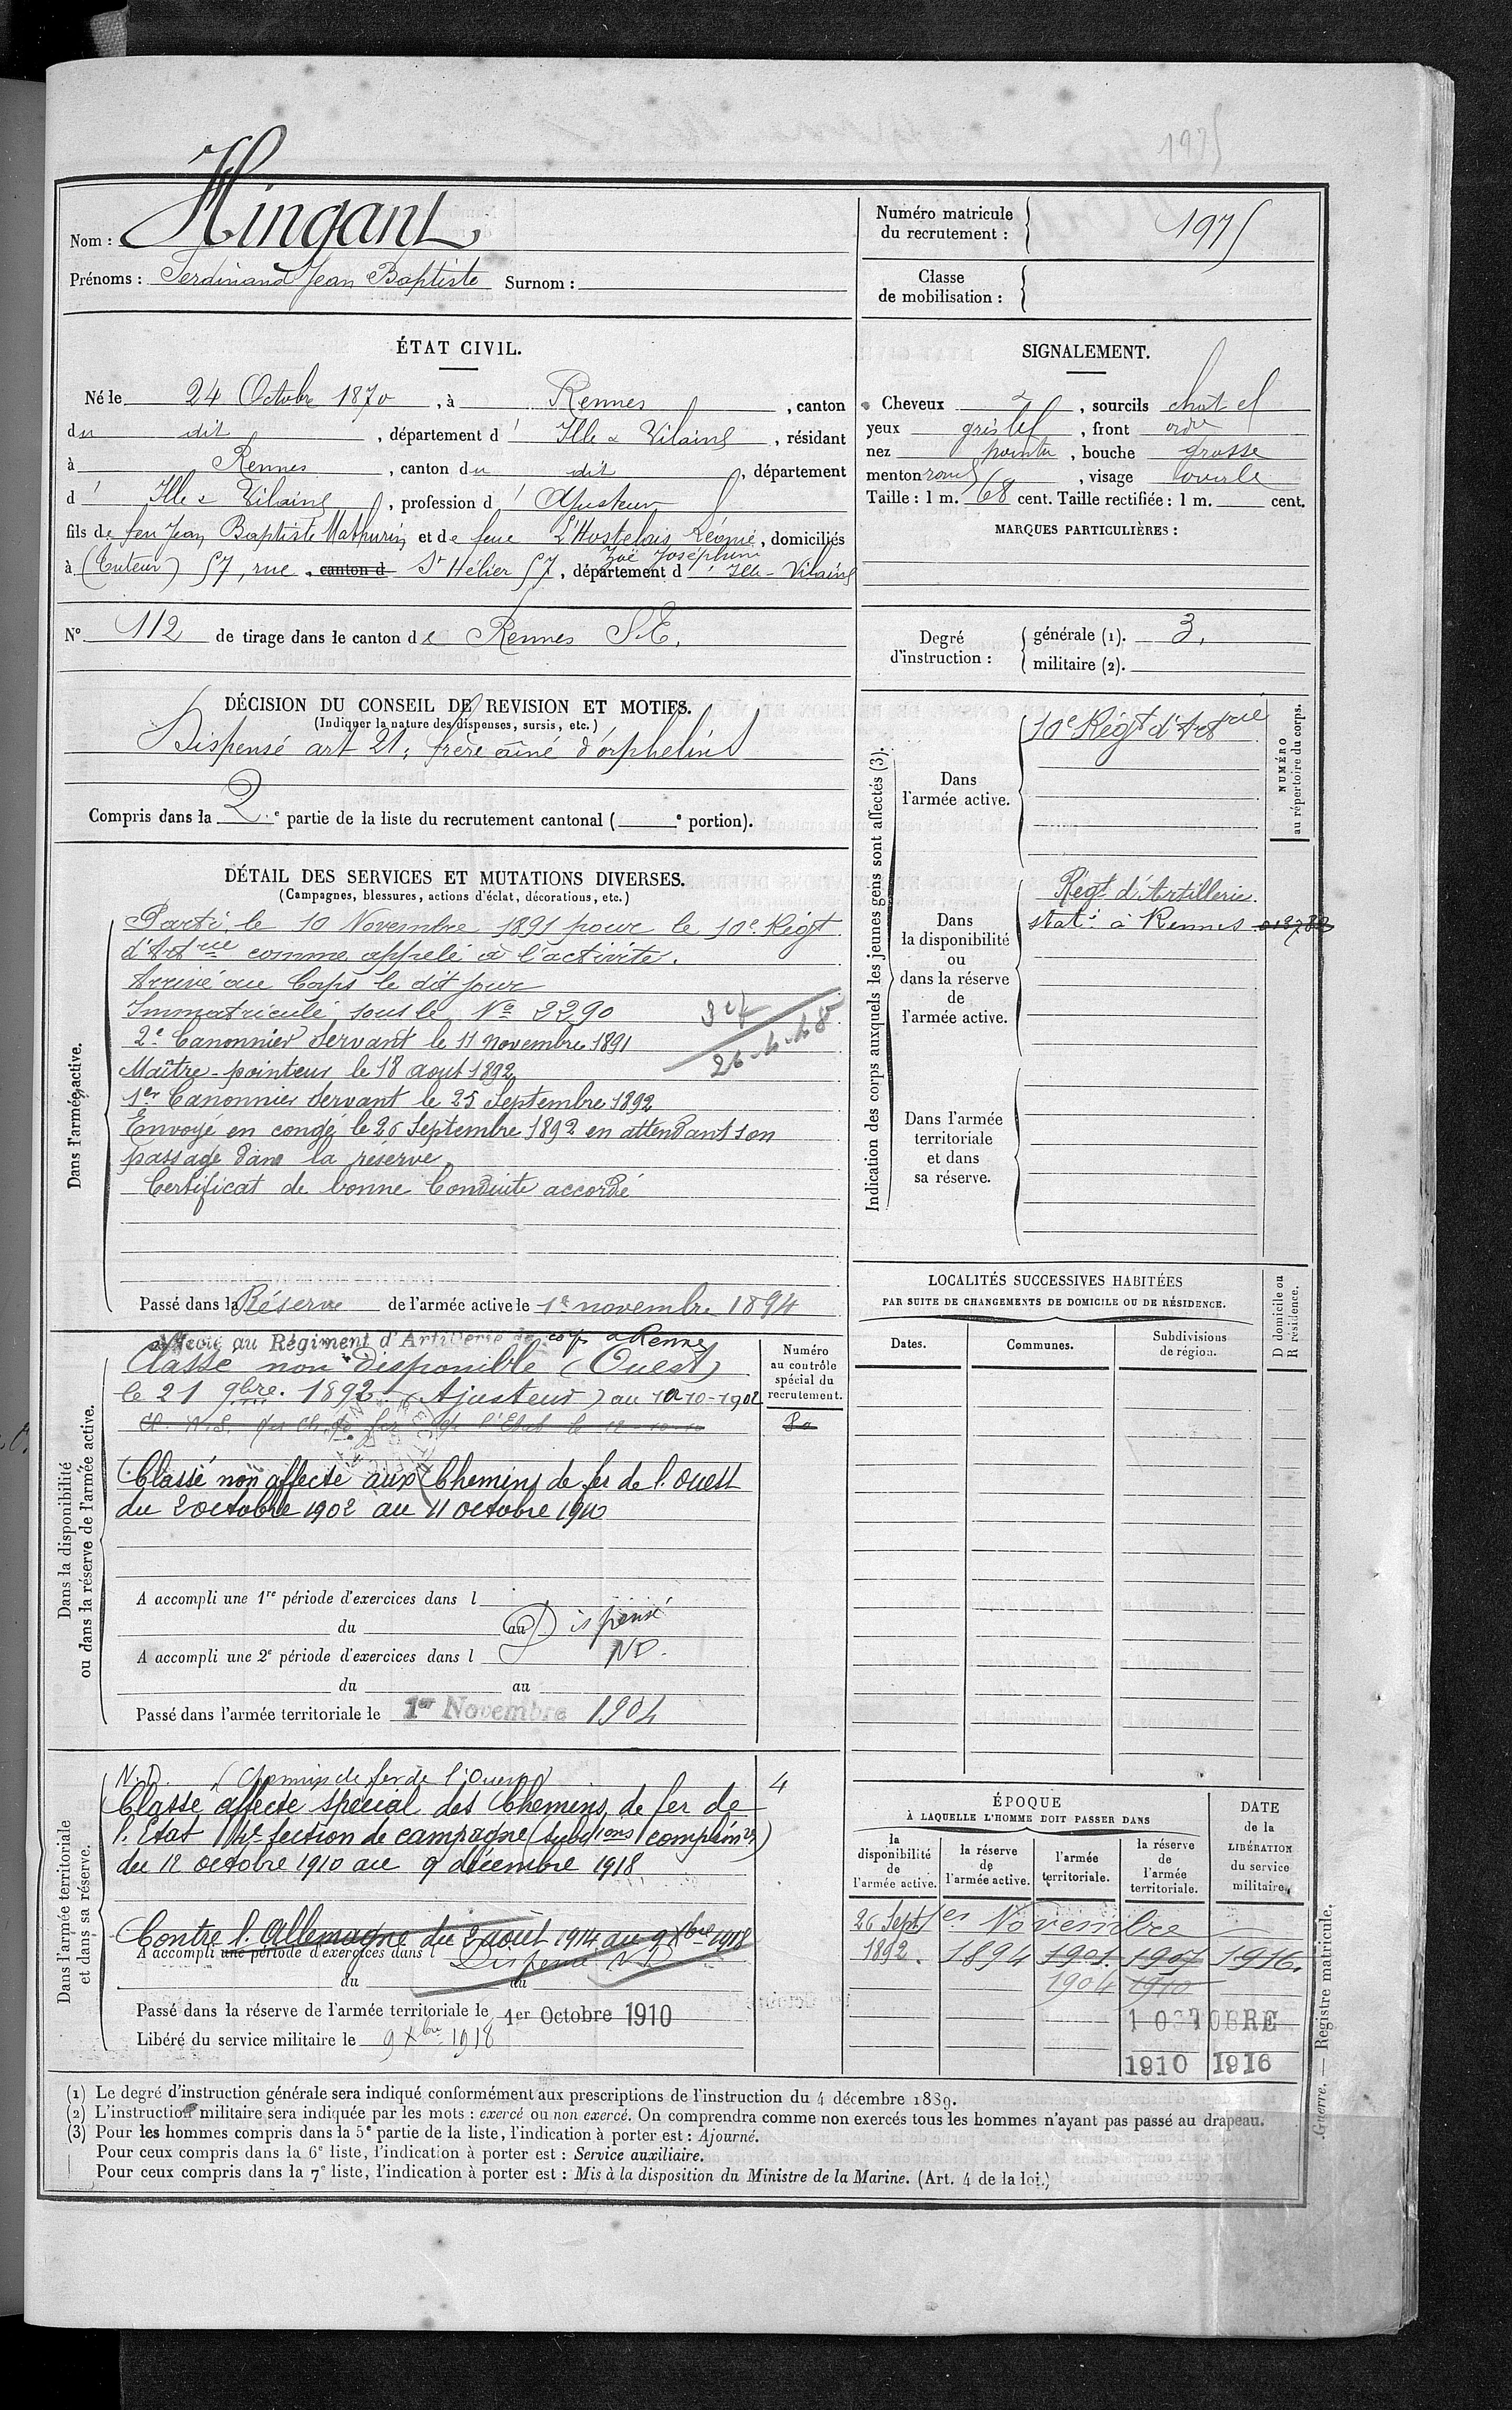 1975
Nom : Hingant
Prénoms : Ferdinand Jean Baptiste Surnom :
Numéro matricule du recrutement : 1975
Classe de mobilisation :
ÉTAT CIVIL.
Né le 24 Octobre 1870, à Rennes, canton
du dit, département d' Ille & Vilaine, résidant
à Rennes, canton du dit, département
d' Ille & Vilaine, profession d' Ajusteur
fils de feu Jean Baptiste Mathurin et de feue L'Hostelais Léonie, domiciliés
Zoë Joséphine
à (Tuteur) 57, rue, canton d St Hélier 57, département d' Ille-Vilaine
N° 112 de tirage dans le canton de Rennes S.E.
SIGNALEMENT.
Cheveux, sourcils chat cl
yeux gris, front ordre
nez pointu, bouche grosse
menton rond, visage ovale
Taille : 1 m. 68 cent. Taille rectifiée : 1 m. cent.
MARQUES PARTICULIÈRES :
Degré d'instruction : générale (1). 3.
militaire (2).
DÉCISION DU CONSEIL DE REVISION ET MOTIFS.
(Indiquer la nature des dispenses, sursis, etc.)
Dispensé art 21, frère aîné d'orphelins
Compris dans la 2e partie de la liste du recrutement cantonal ( e portion).
DÉTAIL DES SERVICES ET MUTATIONS DIVERSES.
(Campagnes, blessures, actions d'éclat, décorations, etc.)
Dans l'armée active.
Parti le 10 Novembre 1891 pour le 10e Régt
d'Artrie comme appelé à l'activité.
Arrivé au Corps le dit jour
Immatriculé sous le No 2290
2e Canonnier servant le 11 novembre 1891
Maître-pointeur le 18 août 1892
1er Canonnier servant le 25 Septembre 1892
Envoyé en congé le 26 Septembre 1892 en attendant son
passage dans la réserve.
Certificat de bonne Conduite accordé
Passé dans la Réserve de l'armée active le 1er novembre 1894
Indication des corps auxquels les jeunes gens sont affectés (3).
NUMÉRO au répertoire du corps.
Dans l'armée active.
10e Régt d'Artrie
Dans la disponibilité ou dans la réserve de l'armée active.
Régt d'Artillerie
stat. à Rennes
Dans l'armée territoriale et dans sa réserve.
Dans la disponibilité ou dans la réserve de l'armée active.
Numéro au contrôle spécial du recrutement.
Affecté au Régiment d'Artillerie de corps à Rennes
Classé non Disponible (Ouest)
le 21 9bre. 1892 (Ajusteur) au 10-1902
Classé non affecté aux Chemins de fer de l'Ouest
du 2 octobre 1902 au 11 octobre 1910
A accompli une 1re période d'exercices dans l
du au Dispensé
A accompli une 2e période d'exercices dans l ND.
du au
Passé dans l'armée territoriale le 1er Novembre 1904
LOCALITÉS SUCCESSIVES HABITÉES
PAR SUITE DE CHANGEMENTS DE DOMICILE OU DE RÉSIDENCE.
Dates. Communes. Subdivisions de région. D domicile ou R résidence.
Dans l'armée territoriale et dans sa réserve.
N.D. (Chemins de fer de l'Ouest) 4
Classé affecté spécial des Chemins de fer de
l'Etat 4e section de campagne (subdions complémres)
du 12 octobre 1910 au 9 décembre 1918
Contre l'Allemagne du 2 août 1914 au 9 Xbre 1918
A accompli une période d'exercices dans l Dispensé N.D
du au
Passé dans la réserve de l'armée territoriale le 1er Octobre 1910
Libéré du service militaire le 9 Xbre 1918
ÉPOQUE
À LAQUELLE L'HOMME DOIT PASSER DANS
la disponibilité de l'armée active. la réserve de l'armée active. l'armée territoriale. la réserve de l'armée territoriale.
DATE de la LIBÉRATION du service militaire.
26 Sept. 1er Novembre
1892. 1894 1901. 1907 1916.
1904 1910
1 OCTOBRE
1910 1916
(1) Le degré d'instruction générale sera indiqué conformément aux prescriptions de l'instruction du 4 décembre 1889.
(2) L'instruction militaire sera indiquée par les mots : exercé ou non exercé. On comprendra comme non exercés tous les hommes n'ayant pas passé au drapeau.
(3) Pour les hommes compris dans la 5e partie de la liste, l'indication à porter est : Ajourné.
Pour ceux compris dans la 6e liste, l'indication à porter est : Service auxiliaire.
Pour ceux compris dans la 7e liste, l'indication à porter est : Mis à la disposition du Ministre de la Marine. (Art. 4 de la loi.)
Guerre. — Registre matricule.